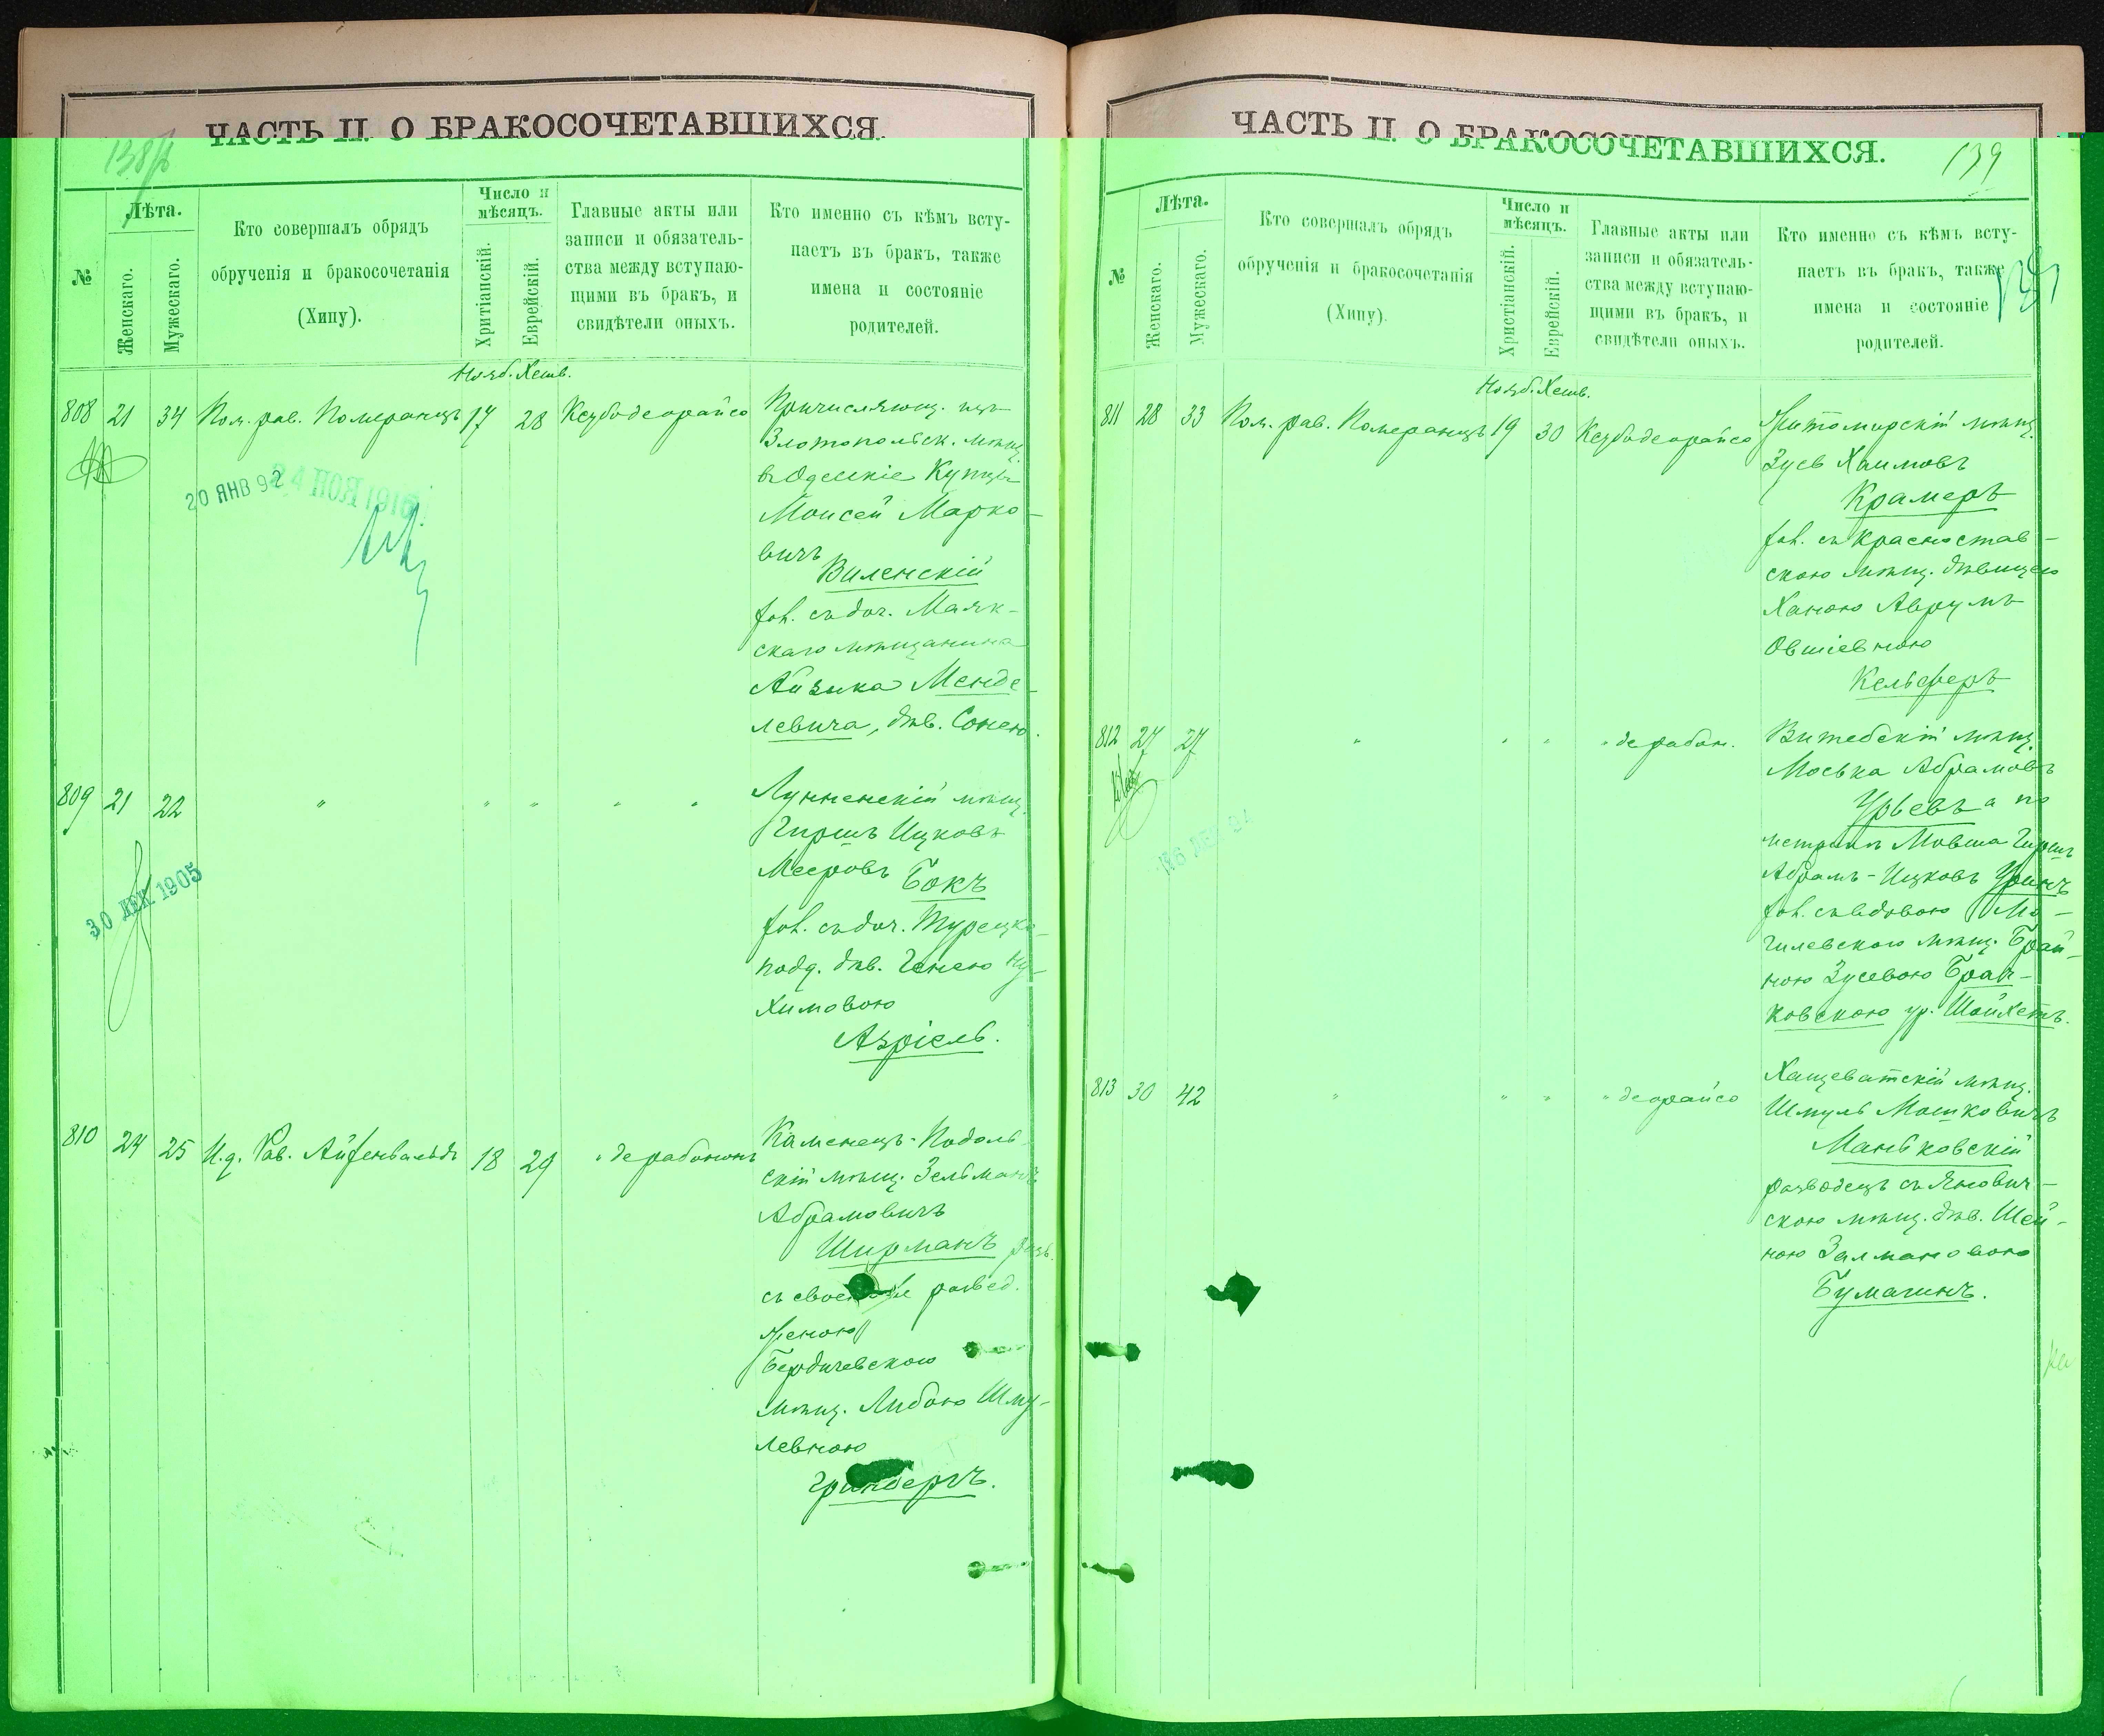 ЧАСТЬ II. О БРАКОСОЧЕТАВШИХСЯ.
№
Лѣта.
Женскаго.
Мужескаго.
Кто совершалъ обрядъ
обрученія и бракосочетанія
(Хипу).
Число и
мѣсяцъ.
Хритіанскій.
Еврейскій.
Главные акты или
записи и обязатель-
ства между вступаю-
щими въ бракъ, и
свидѣтели оныхъ.
Кто именно съ кѣмъ всту-
паетъ въ бракъ, также
имена и состояніе
родителей.
Нояб. Хешв.
808 21 34 Пом. рав. Померанцъ 17 28 Ксубодеорайсо
Причисляющ. изъ
Златопольск. мѣщ.
въ Одесскіе Купцы
Моисей Марко-
вичъ
Виленскій
хол. съ доч. Маяк-
скаго мѣщанина
Айзика Менде-
левича, дѣв. Сонею.
20 ЯНВ 92
24 НОЯ 1916
809 21 22 " " " " "
Лунненскій мѣщ.
Гиршъ Ицковъ
Мееровъ Бокъ
хол. съ доч. Турецко-
подд. дѣв. Генею Ну-
химовою
Азріель.
30 ДЕК 1905
810 24 25 И.д. Рав. Айзенвальдъ 18 29 " дерабононъ
Каменецъ-Подоль-
скій мѣщ. Зельманъ
Абрамовичъ
Ширманъ разв.
съ своею развед.
женою
Бердичевскою
мѣщ. Либою Шму-
левною
Гринбергъ.
ЧАСТЬ II. О БРАКОСОЧЕТАВШИХСЯ.
139
№
Лѣта.
Женскаго.
Мужескаго.
Кто совершалъ обрядъ
обрученія и бракосочетанія
(Хипу).
Число и
мѣсяцъ.
Христіанскій.
Еврейскій.
Главные акты или
записи и обязатель-
ства между вступаю-
щими въ бракъ, и
свидѣтели оныхъ.
Кто именно съ кѣмъ всту-
паетъ въ бракъ, также
имена и состояніе
родителей.
Нояб. Хешв.
811 28 33 Пом. рав. Померанцъ 19 30 Ксубодеорайсо
Житомирскій мѣщ.
Зусь Хаимовъ
Крамеръ
хол. съ Красностав-
скою мѣщ. дѣвицею
Ханою Аврумъ
Овшіевною
Кельсферъ
812 27 27 " " " " дерабон.
Витебскій мѣщ.
Моська Абрамовъ
Урьевъ а по
метрикѣ Мовша Гиршъ
Абрамъ-Ицковъ Уринъ
хол. съ вдовою Мо-
гилевскою мѣщ. Брай-
ною Зусевою Брай-
ковскою ур. Шойхетъ.
813 30 42 " " " " деорайсо
Хащеватскій мѣщ.
Шмуль Мошковичъ
Маньковскій
разводецъ съ Янович-
скою мѣщ. дѣв. Шей-
ною Залмановою
Бумагинъ.